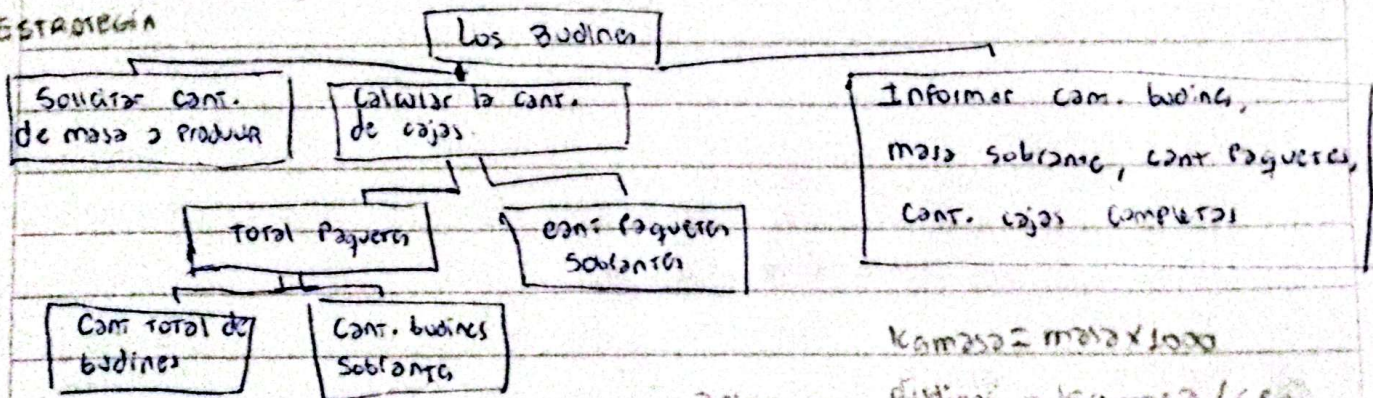 ESTRATEGIA
Los Budines
Solicitar cant.
de masa a producir
Calcular la cant.
de cajas.
Informar cant. budines,
masa sobrante, cant paquetes,
cant. cajas completas
Total Paquetes
cant Paquetes
Sobrantes
Cant total de
budines
Cant. budines
Sobrantes
Kgmasa = masa x 1000